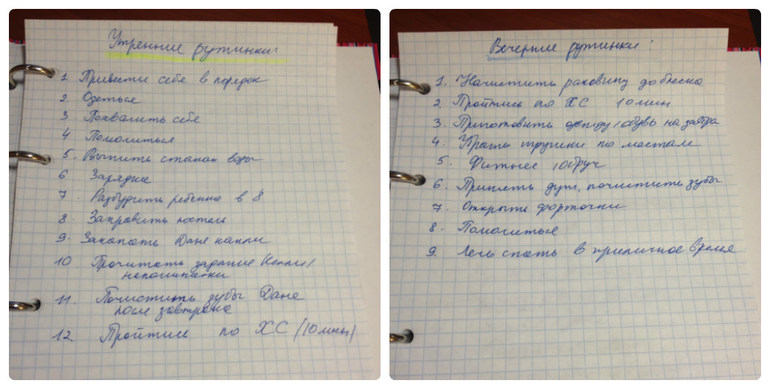 Утренние рутинки:
1. Привести себя в порядок
2. Одеться
3 Похвалить себя
4 Помолиться
5. Выпить стакан воды
6 Зарядка
7 Разбудить ребенка в 8
8 Заправить постели
9. Закапать Дане капли
10 Прочитать задание
непоминалки
11. Почистить зубы Дане
после завтрака
12. Пройтись по ХС (10 мин)
Вечерние рутинки:
1. Начистить раковину до блеска
2 Пройтись по ХС 10 мин
3. Приготовить одежду/обувь на завтра
4. Убрать игрушки по местам
5. Фитнес /обруч
6. Принять душ, почистить зубы
7. Открыть форточки
8. Помолиться
9. Лечь спать в приличное время